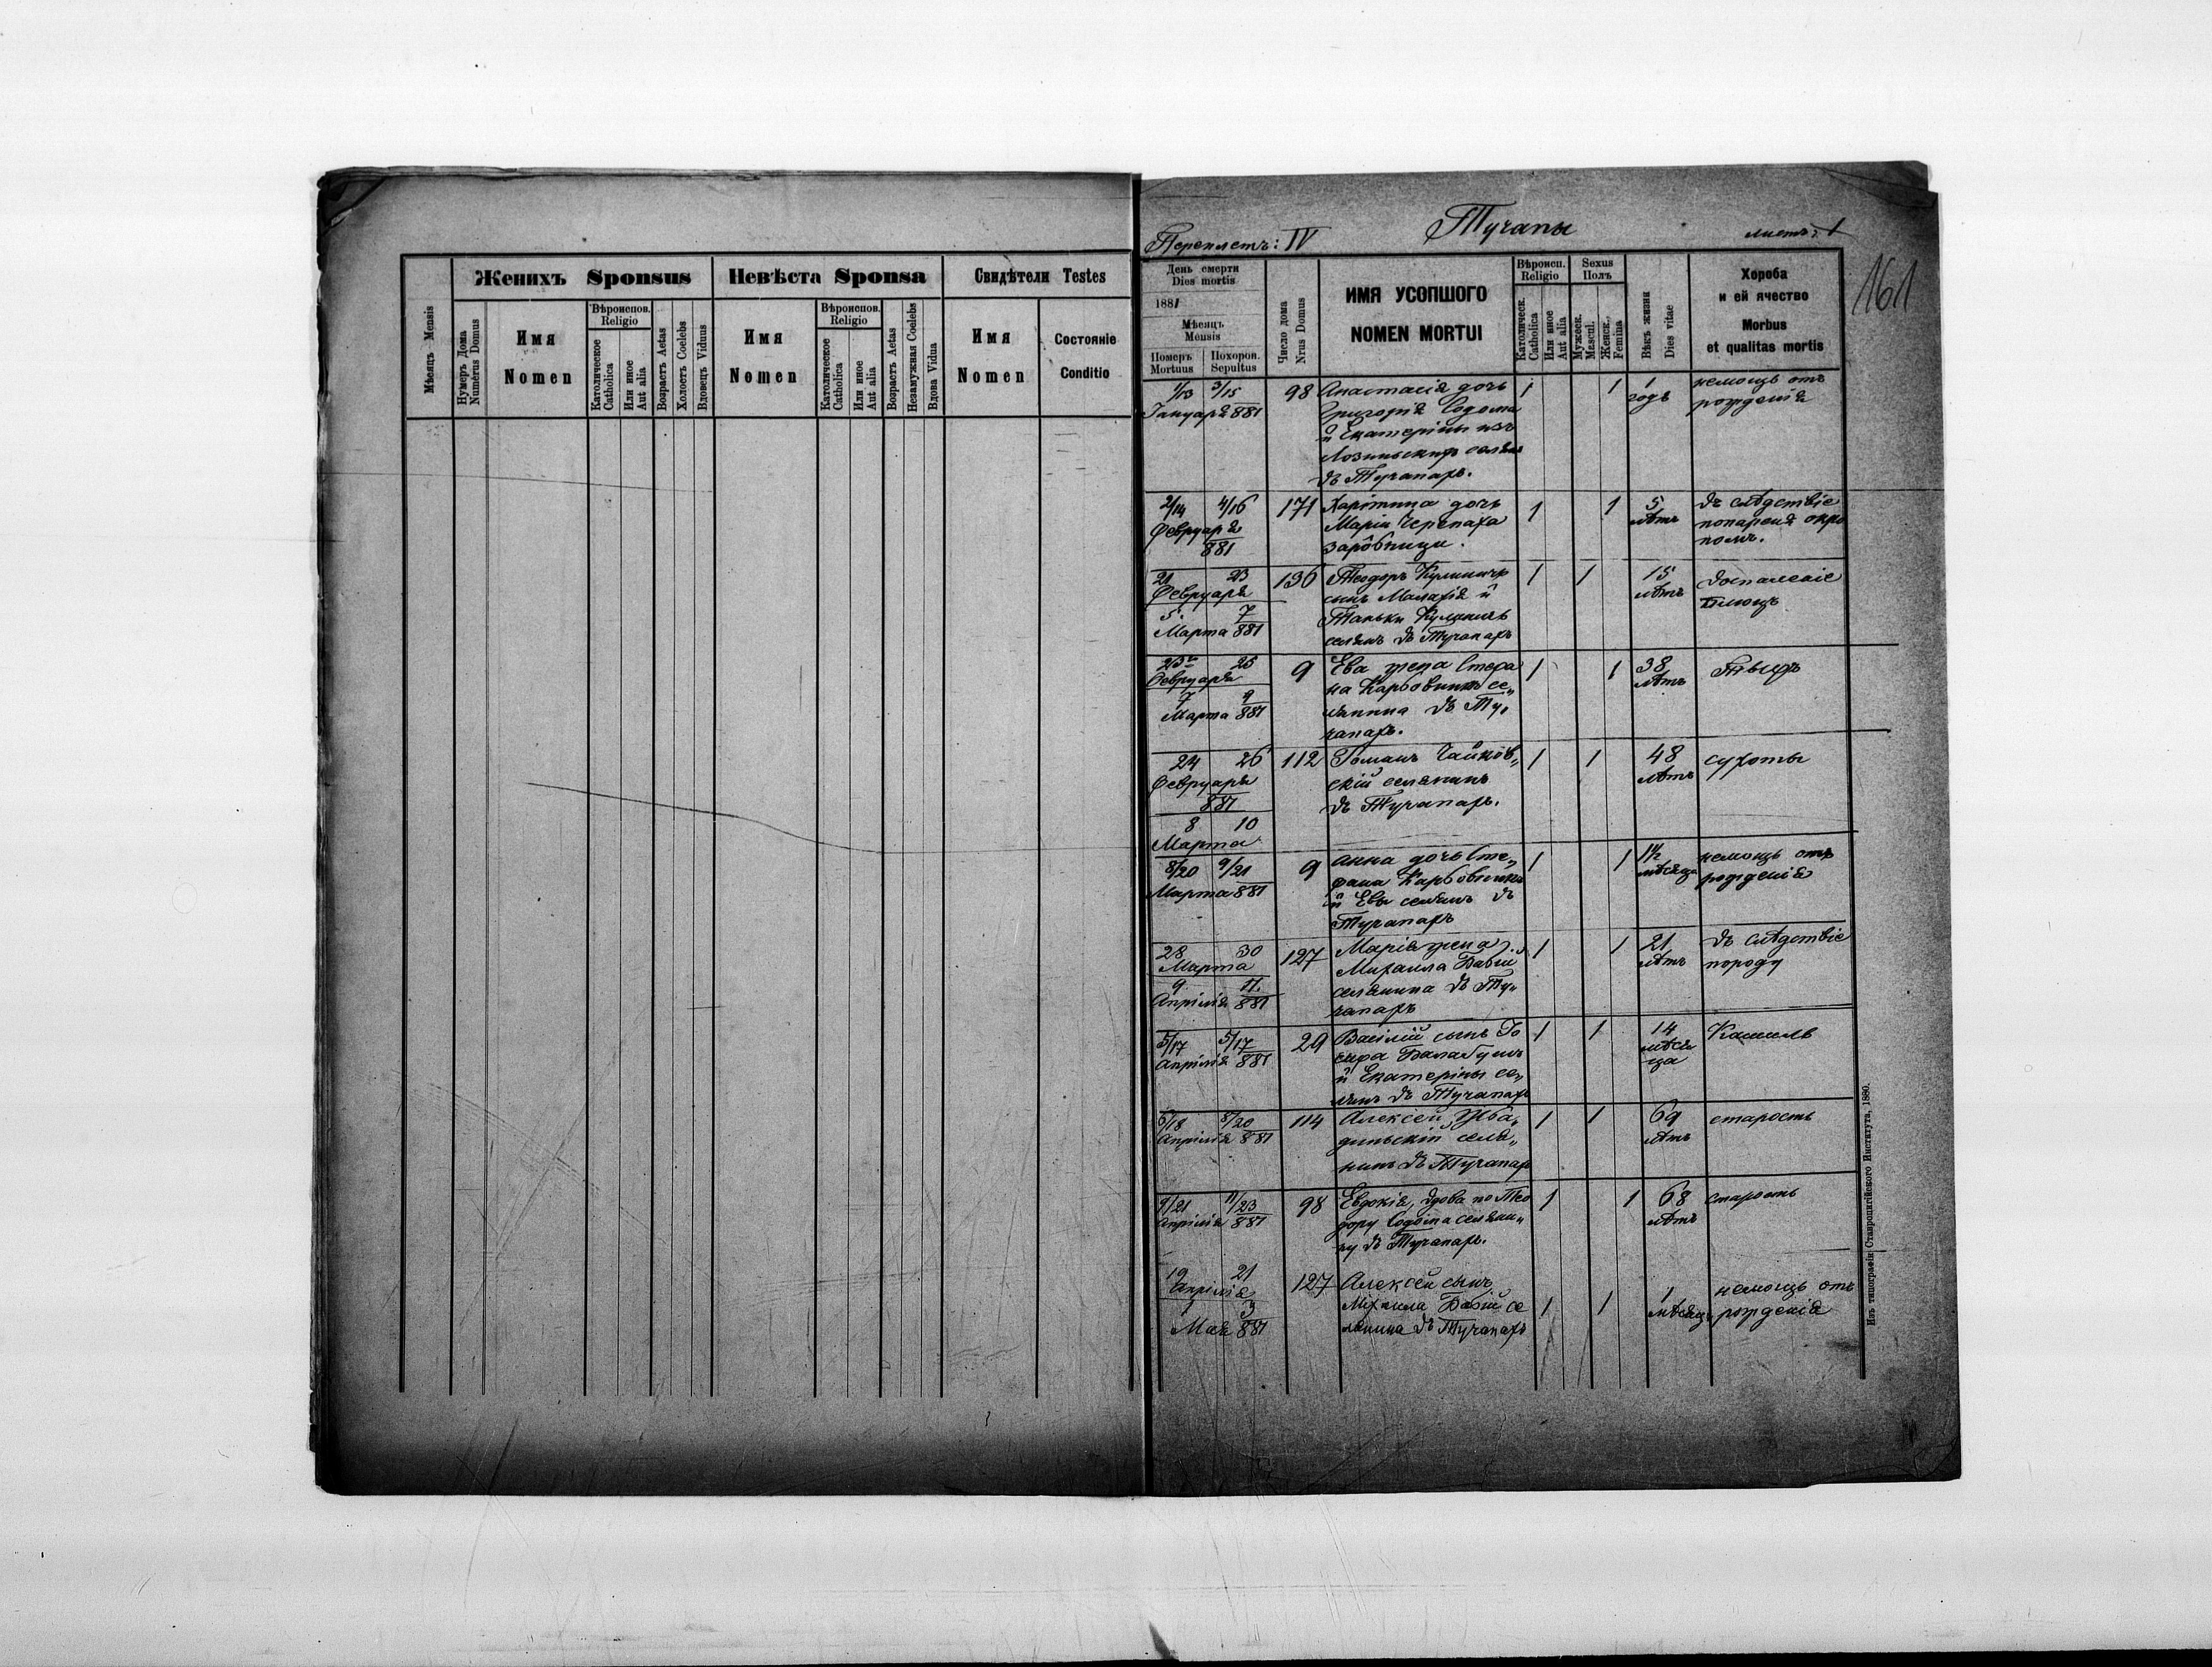 Женихъ Sponsus
Невѣста Sponsa
Свидѣтели Testes
Мѣсяцъ Mensis
Нумеръ Дома
Numerus Domus
Имя
Nomen
Вѣроиспов.
Religio
Католическое
Catholica
Или иное
Aut alia
Возрастъ Aetas
Холостъ Coelebs
Вдовецъ Viduus
Имя
Nomen
Вѣроиспов.
Religio
Католическое
Catholica
Или иное
Aut alia
Возрастъ Aetas
Незамужная Coelebs
Вдова Vidua
Имя
Nomen
Состояніе
Conditio
Переплетъ: IV
Тучапы
листъ: 1
161
День смерти
Dies mortis
1881
Мѣсяцъ
Mensis
Померъ
Mortuus
Похорон.
Sepultus
Число дома
Nrus Domus
ИМЯ УСОПШОГО
NOMEN MORTUI
Вѣроисп.
Religio
Католическ.
Catholica
Или иное
Aut alia
Sexus
Полъ
Мужеск.
Mascul.
Женск.,
Femina
Вѣкъ жизни
Dies vitae
Хороба
и ей ячество
Morbus
et qualitas mortis
1/13 3/15 98 Анастасія дочь 1 1 1 немощь отъ
Януаря 881 Григорія Содома годъ рожденія
и Екатерины изъ
Лозиньскихъ селян
въ Тучапахъ.
2/14 4/16 171 Харітина дочь 1 1 5 въ слѣдствіе
Февруаря Маріи Черепаха лѣтъ попареня окро
881 зарôбници. помъ.
21 23 136 Теодоръ Кулиничъ 1 1 15 воспаленіе
Февруаря сынъ Малахія и лѣтъ
5 7 Таньки Кулиничъ
Марта 881 селянъ въ Тучапахъ
23 25 9 Ева жена Стефа 1 1 38
Февруаря на Карбовникъ се„ лѣтъ
7 9 лянина въ Ту„
Марта 881 чапахъ.
24 26 112 Романъ Чайкôв„ 1 1 48 сухоты
Февруаря скій селянинъ лѣтъ
881 въ Тучапахъ.
8 10
Марта
8/20 9/21 9 Анна дочь Сте„ 1 1 1½ немощь отъ
Марта 881 фана Карбовника мѣсяца рожденія
и Евы селянъ въ
Тучапахъ
28 30 127 Марія жена 1 1 21 въ слѣдствіе
Марта Михаила Бабій лѣтъ породу
9 11 селянина въ Ту„
Апрілія 881 чапахъ
5/17 5/17 29 Васілій сынъ Іо 1 1 14 Кашель
Апрілія 881 сифа Балабухъ мѣся
и Екатеріны се„ ца
лянъ въ Тучапахъ
6/18 8/20 114 Алексей 1 1 69 старость
Апрілія 881 селя„ лѣтъ
нинъ въ Тучапахъ
9/21 11/23 98 Евдокія, вдова по Тео 1 1 68 старость
Апрілія 881 дору Содома селяни„ лѣтъ
ну въ Тучапахъ.
19 21 127 Алексей сынъ
Апрілія 1 немощь отъ
1 3 Міхаила Бабій се 1 1 мѣсяцъ рожденія
Мая 881 лянина въ Тучапахъ
Изъ типографіи Ставропигійского Института, 1880.